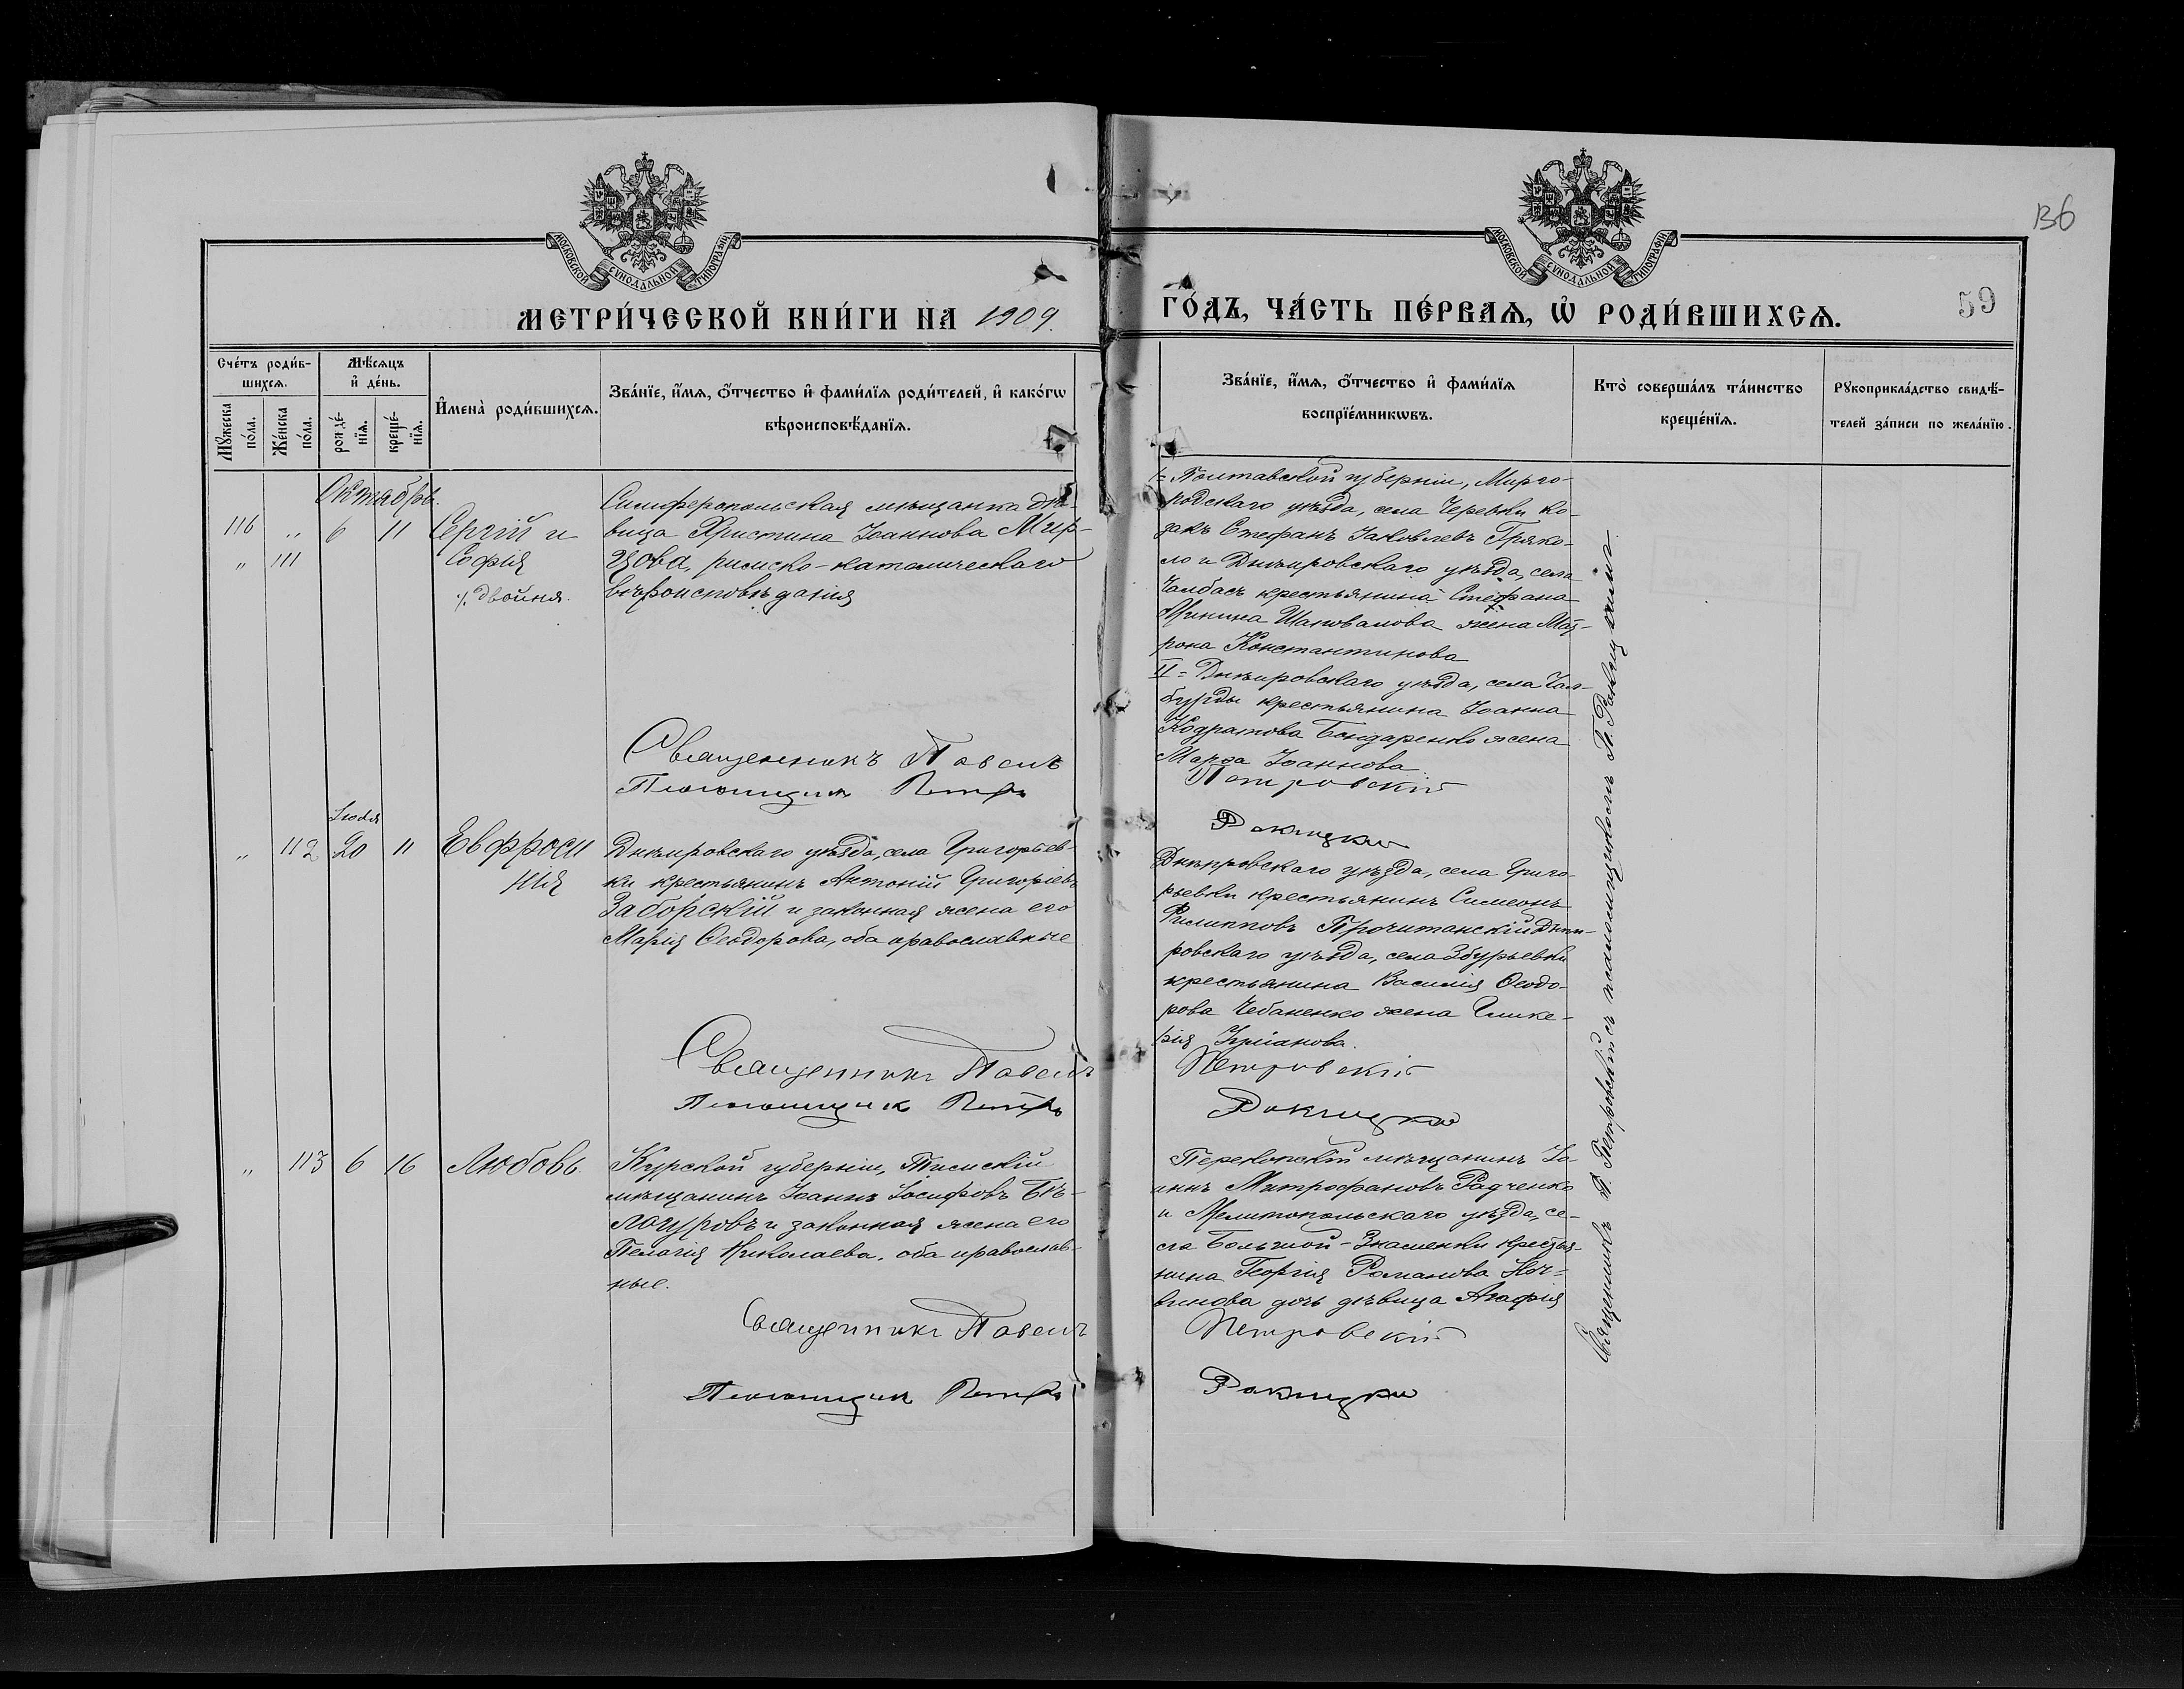 136
МОСКОВСКОЙ СѴНОДАЛЬНОЙ ТИПОГРАФІИ
МОСКОВСКОЙ СѴНОДАЛЬНОЙ ТИПОГРАФІИ
МЕТРИ́ЧЕСКОЙ КНИ́ГИ НА 1909.
ГО́ДЪ, ЧА́СТЬ ПЕ́РВАѦ, Ѡ҆ РОДИ́ВШИХСѦ.
59
Сче́тъ роди́в-
шихсѧ.
Мꙋ́жеска
по́ла.
Же́нска
по́ла.
Мѣ́сѧцъ
и҆ де́нь.
рожде́-
нїѧ.
креще́-
нїѧ.
И҆мена̀ роди́вшихсѧ.
Зва́нїе, и҆́мѧ, ѻ҆́тчество и҆ фами́лїѧ роди́телей, и҆ како́гѡ
вѣроисповѣ́данїѧ.
Зва́нїе, и҆́мѧ, ѻ҆́тчество и҆ фами́лїѧ
воспрїе́мникѡвъ.
Кто̀ соверша́лъ та́инство
креще́нїѧ.
Рꙋкоприкла́дство свидѣ́-
телей за́писи по жела́нїю.
Октябрь.
116 „ 6 11 Сергій и
„ 111 София
двойня.
Симферопольская мѣщанка дѣ-
вица Христина Іоаннова Мир-
зова, римско-католическаго
вѣроисповѣданія
Священникъ Павелъ
Псаломщик Петръ
I= Полтавской губерніи, Мирго-
родскаго уѣзда, села Черевки ко-
закъ Стефанъ Іаковлевъ Гряко-
ло и Днѣпровскаго уѣзда, села
Чалбасъ крестьянина Стефана
Никина Шаповалова жена Мат-
рона Константинова
II= Днѣпровскаго уѣзда, села Чал-
бурды крестьянина Іоанна
Кодратова Бондаренко жена
Марфа Іоаннова
Петровскій
Рокицкій
Іюля
„ 112 20 11 Евфроси
нія
Днѣпровскаго уѣзда, села Григорьев-
ки крестьянинъ Антоній Григорьевъ
Заборскій и законная жена его
Марія Ѳеодорова, оба православные
Священникъ Павелъ
Псаломщик Петръ
Днѣпровскаго уѣзда, села Григо-
рьевки крестьянинъ Симеонъ
Филипповъ Прочитанскій и Днѣп-
ровскаго уѣзда, села Збурьевки
крестьянина Василія Ѳеодо-
рова Чебаненко жена Глике-
рія Іуліанова.
Петровскій
Рокицкій
„ 113 6 16 Любовь
Курской губерніи, Тимскій
мѣщанинъ Іоаннъ Іосифовъ Бѣ-
логуровъ и законная жена его
Пелагія Николаева, оба православ-
ные.
Священникъ Павелъ
Псаломщик Петръ
Перекопскій мѣщанинъ Іо-
аннъ Митрофановъ Радченко
и Мелитопольскаго уѣзда, се-
ла Большой-Знаменки крестья-
нина Георгія Романова
дочь дѣвица Агафія
Петровскій
Рокицкій
Священникъ П. Петровскій съ псаломщикомъ П. Рокицкимъ